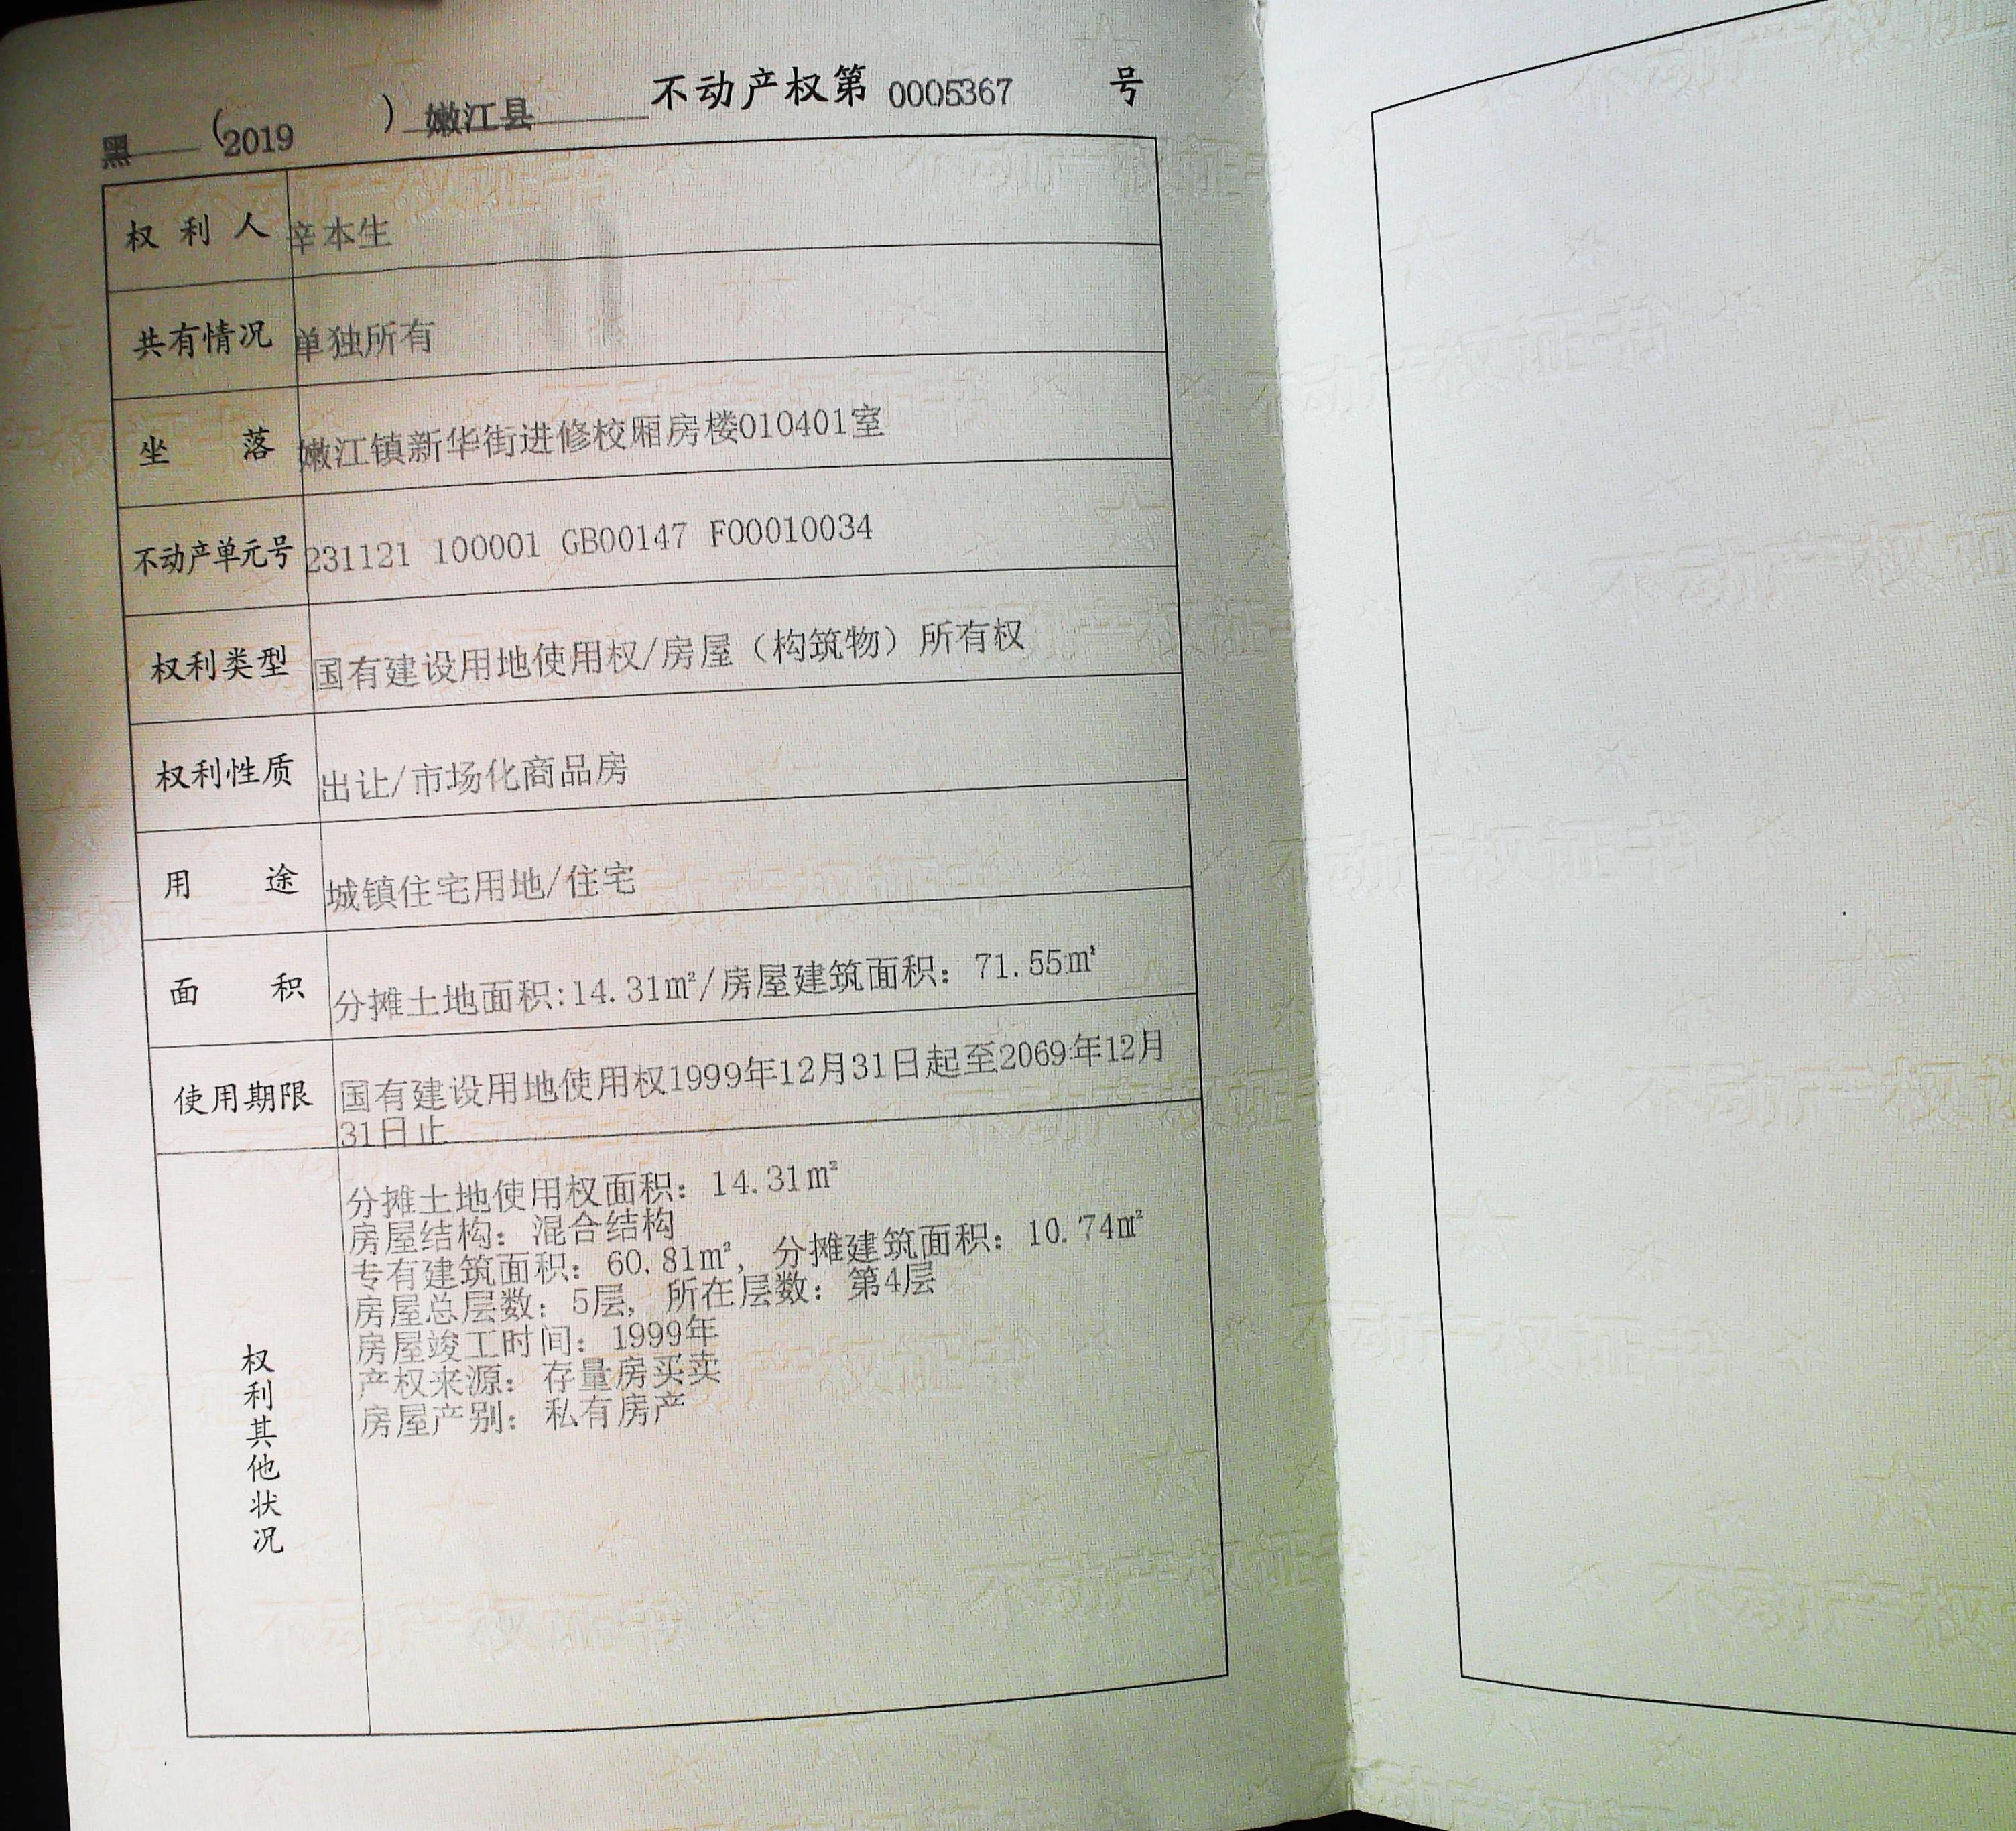 黑 （2019 ） 嫩江县 不动产权第 0005367 号
权利人 辛本生
共有情况 单独所有
坐落 嫩江镇新华街进修校厢房楼010401室
不动产单元号 231121 100001 GB00147 F00010034
权利类型 国有建设用地使用权/房屋（构筑物）所有权
权利性质 出让/市场化商品房
用途 城镇住宅用地/住宅
面积 分摊土地面积:14.31㎡/房屋建筑面积：71.55㎡
使用期限 国有建设用地使用权1999年12月31日起至2069年12月
31日止
权利其他状况
分摊土地使用权面积：14.31㎡
房屋结构：混合结构
专有建筑面积：60.81㎡，分摊建筑面积：10.74㎡
房屋总层数：5层，所在层数：第4层
房屋竣工时间：1999年
产权来源：存量房买卖
房屋产别：私有房产